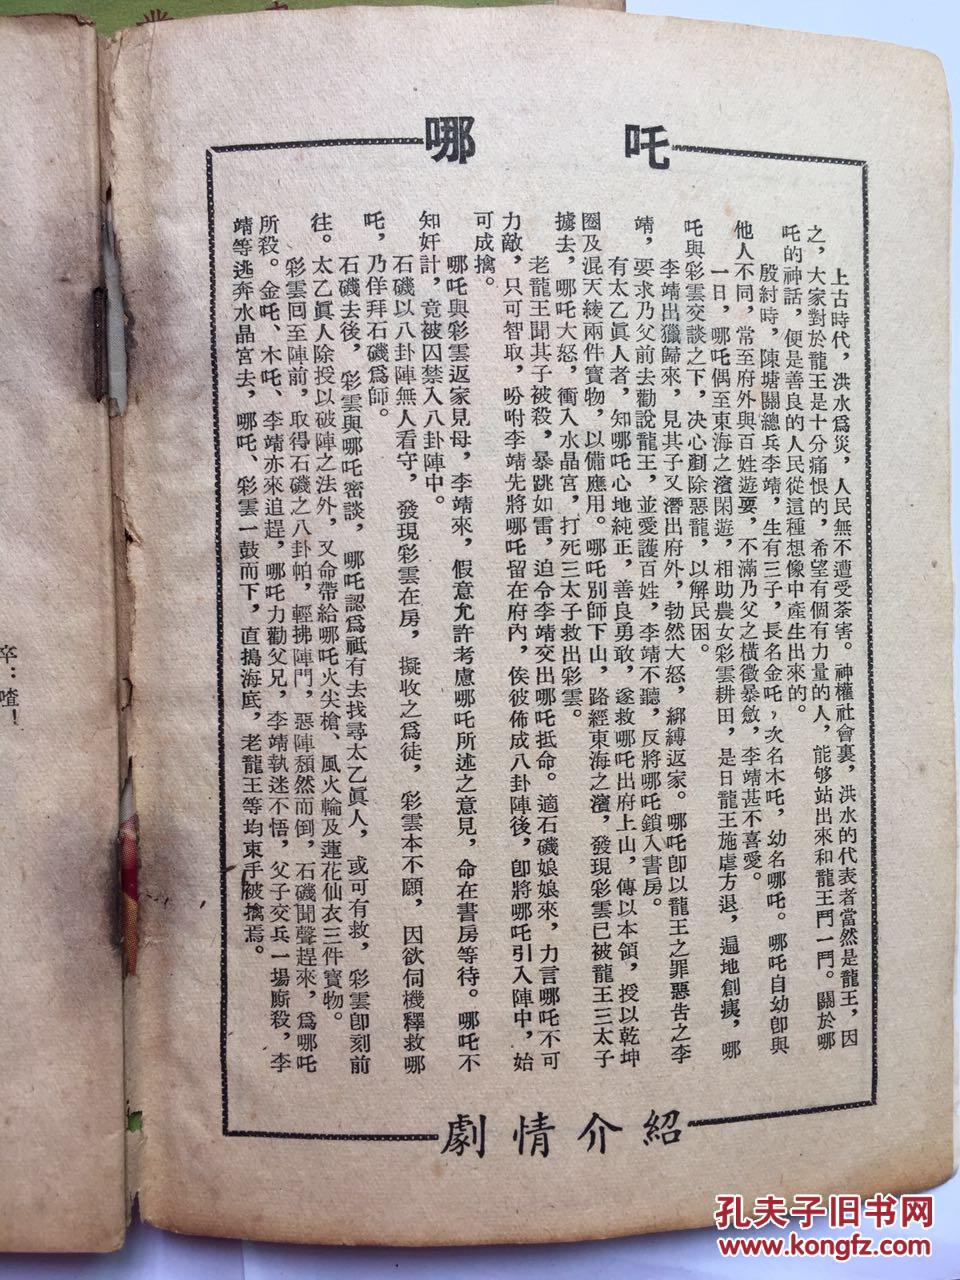 哪吒
上古時代，洪水爲災，人民無不遭受荼害。神權社會裏，洪水的代表者當然是龍王，因
之，大家對於龍王是十分痛恨的，希望有個有力量的人，能够站出來和龍王鬥一鬥。關於哪
吒的神話，便是善良的人民從這種想像中產生出來的。
殷紂時，陳塘關總兵李靖，生有三子，長名金吒，次名木吒，幼名哪吒。哪吒自幼卽與
他人不同，常至府外與百姓遊耍，不滿乃父之橫徵暴斂，李靖甚不喜愛。
一日，哪吒偶至東海之濱閑遊，相助農女彩雲耕田，是日龍王施虐方退，遍地創痍，哪
吒與彩雲交談之下，决心剷除惡龍，以解民困。
李靖出獵歸來，見其子又潛出府外，勃然大怒，綁縛返家。哪吒卽以龍王之罪惡告之李
靖，要求乃父前去勸說龍王，並愛護百姓，李靖不聽，反將哪吒鎖入書房。
有太乙眞人者，知哪吒心地純正，善良勇敢，遂救哪吒出府上山，傳以本領，授以乾坤
圈及混天綾兩件寳物，以備應用。哪吒別師下山，路經東海之濱，發現彩雲已被龍王三太子
擄去，哪吒大怒，衝入水晶宮，打死三太子救出彩雲。
老龍王聞其子被殺，暴跳如雷，迫令李靖交出哪吒抵命。適石磯娘娘來，力言哪吒不可
力敵，只可智取，吩咐李靖先將哪吒留在府內，俟彼佈成八卦陣後，卽將哪吒引入陣中，始
可成擒。
哪吒與彩雲返家見母，李靖來，假意允許考慮哪吒所述之意見，命在書房等待。哪吒不
知奸計，竟被囚禁入八卦陣中。
石磯以八卦陣無人看守，發現彩雲在房，擬收之爲徒，彩雲本不願，因欲伺機釋救哪
吒，乃佯拜石磯爲師。
石磯去後，彩雲與哪吒密談，哪吒認爲祗有去找尋太乙眞人，或可有救，彩雲卽刻前
往。太乙眞人除授以破陣之法外，又命帶給哪吒火尖槍、風火輪及蓮花仙衣三件寳物。
彩雲回至陣前，取得石磯之八卦帕，輕拂陣門，惡陣頹然而倒，石磯聞聲趕來，爲哪吒
所殺。金吒、木吒、李靖亦來追趕，哪吒力勸父兄，李靖執迷不悟，父子交兵一場廝殺，李
靖等逃奔水晶宮去，哪吒、彩雲一鼓而下，直搗海底，老龍王等均束手被擒焉。
劇情介紹
卒：喳！
孔夫子旧书网
www.kongfz.com